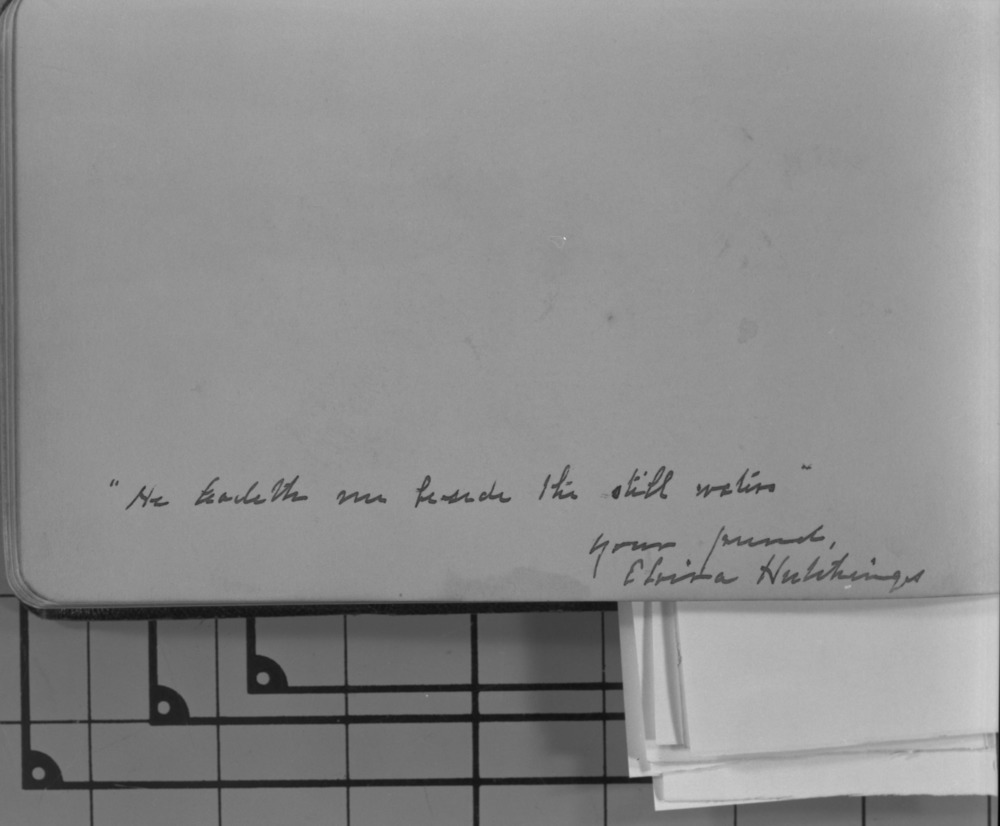 "He leadeth me beside the still waters"
your friend,
Elvira Hutchings